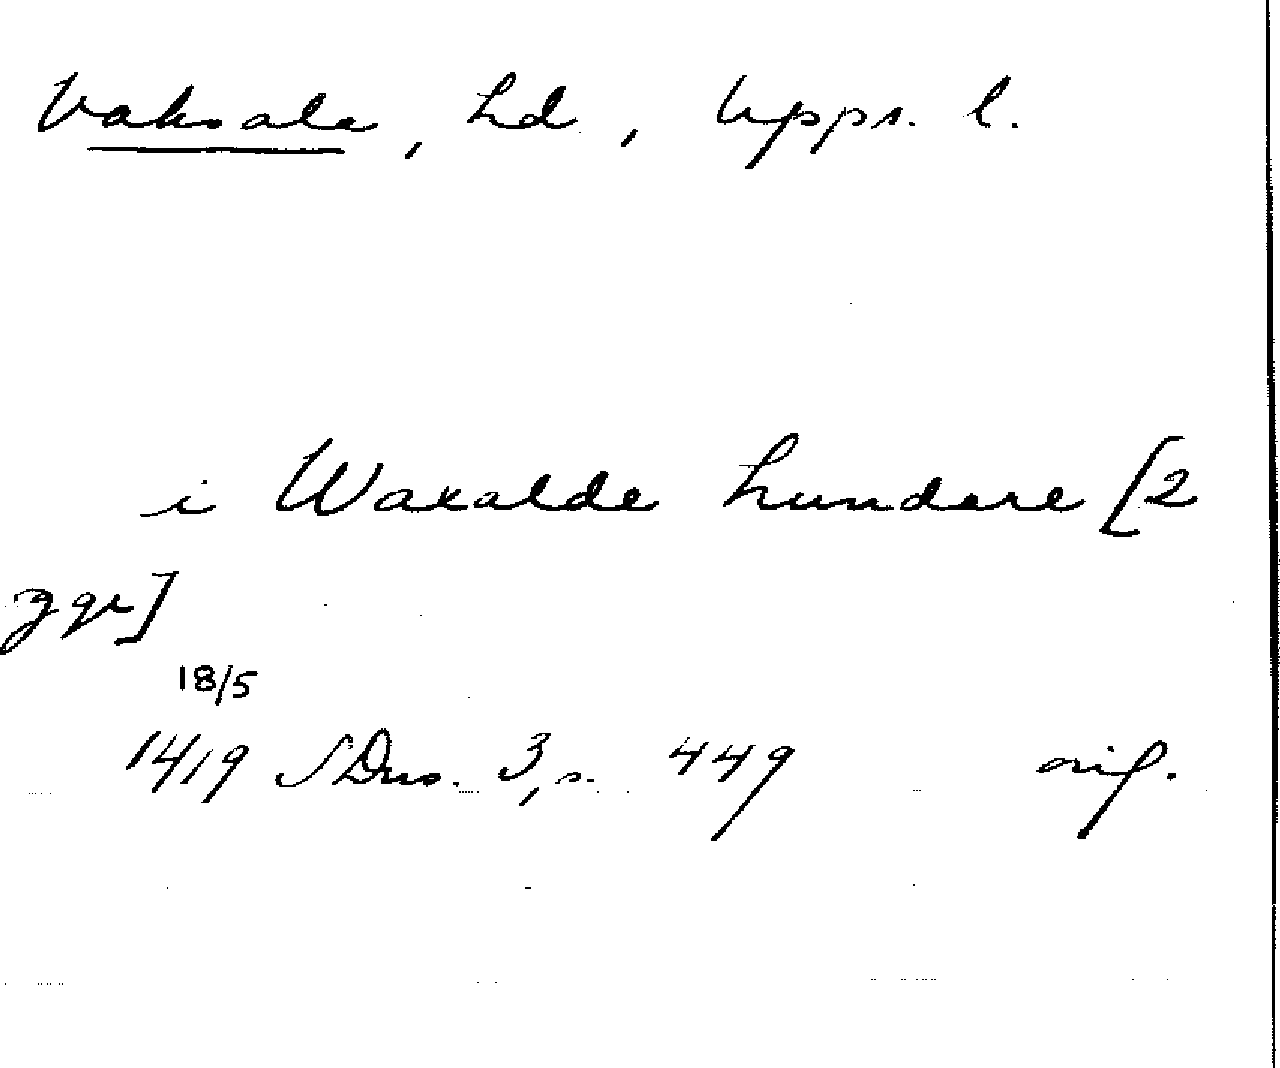 Vaksala, hd, Upps. l.
i Waxalde hundare [2
ggr]
18/5
1419 SDns. 3, s. 449 orig.